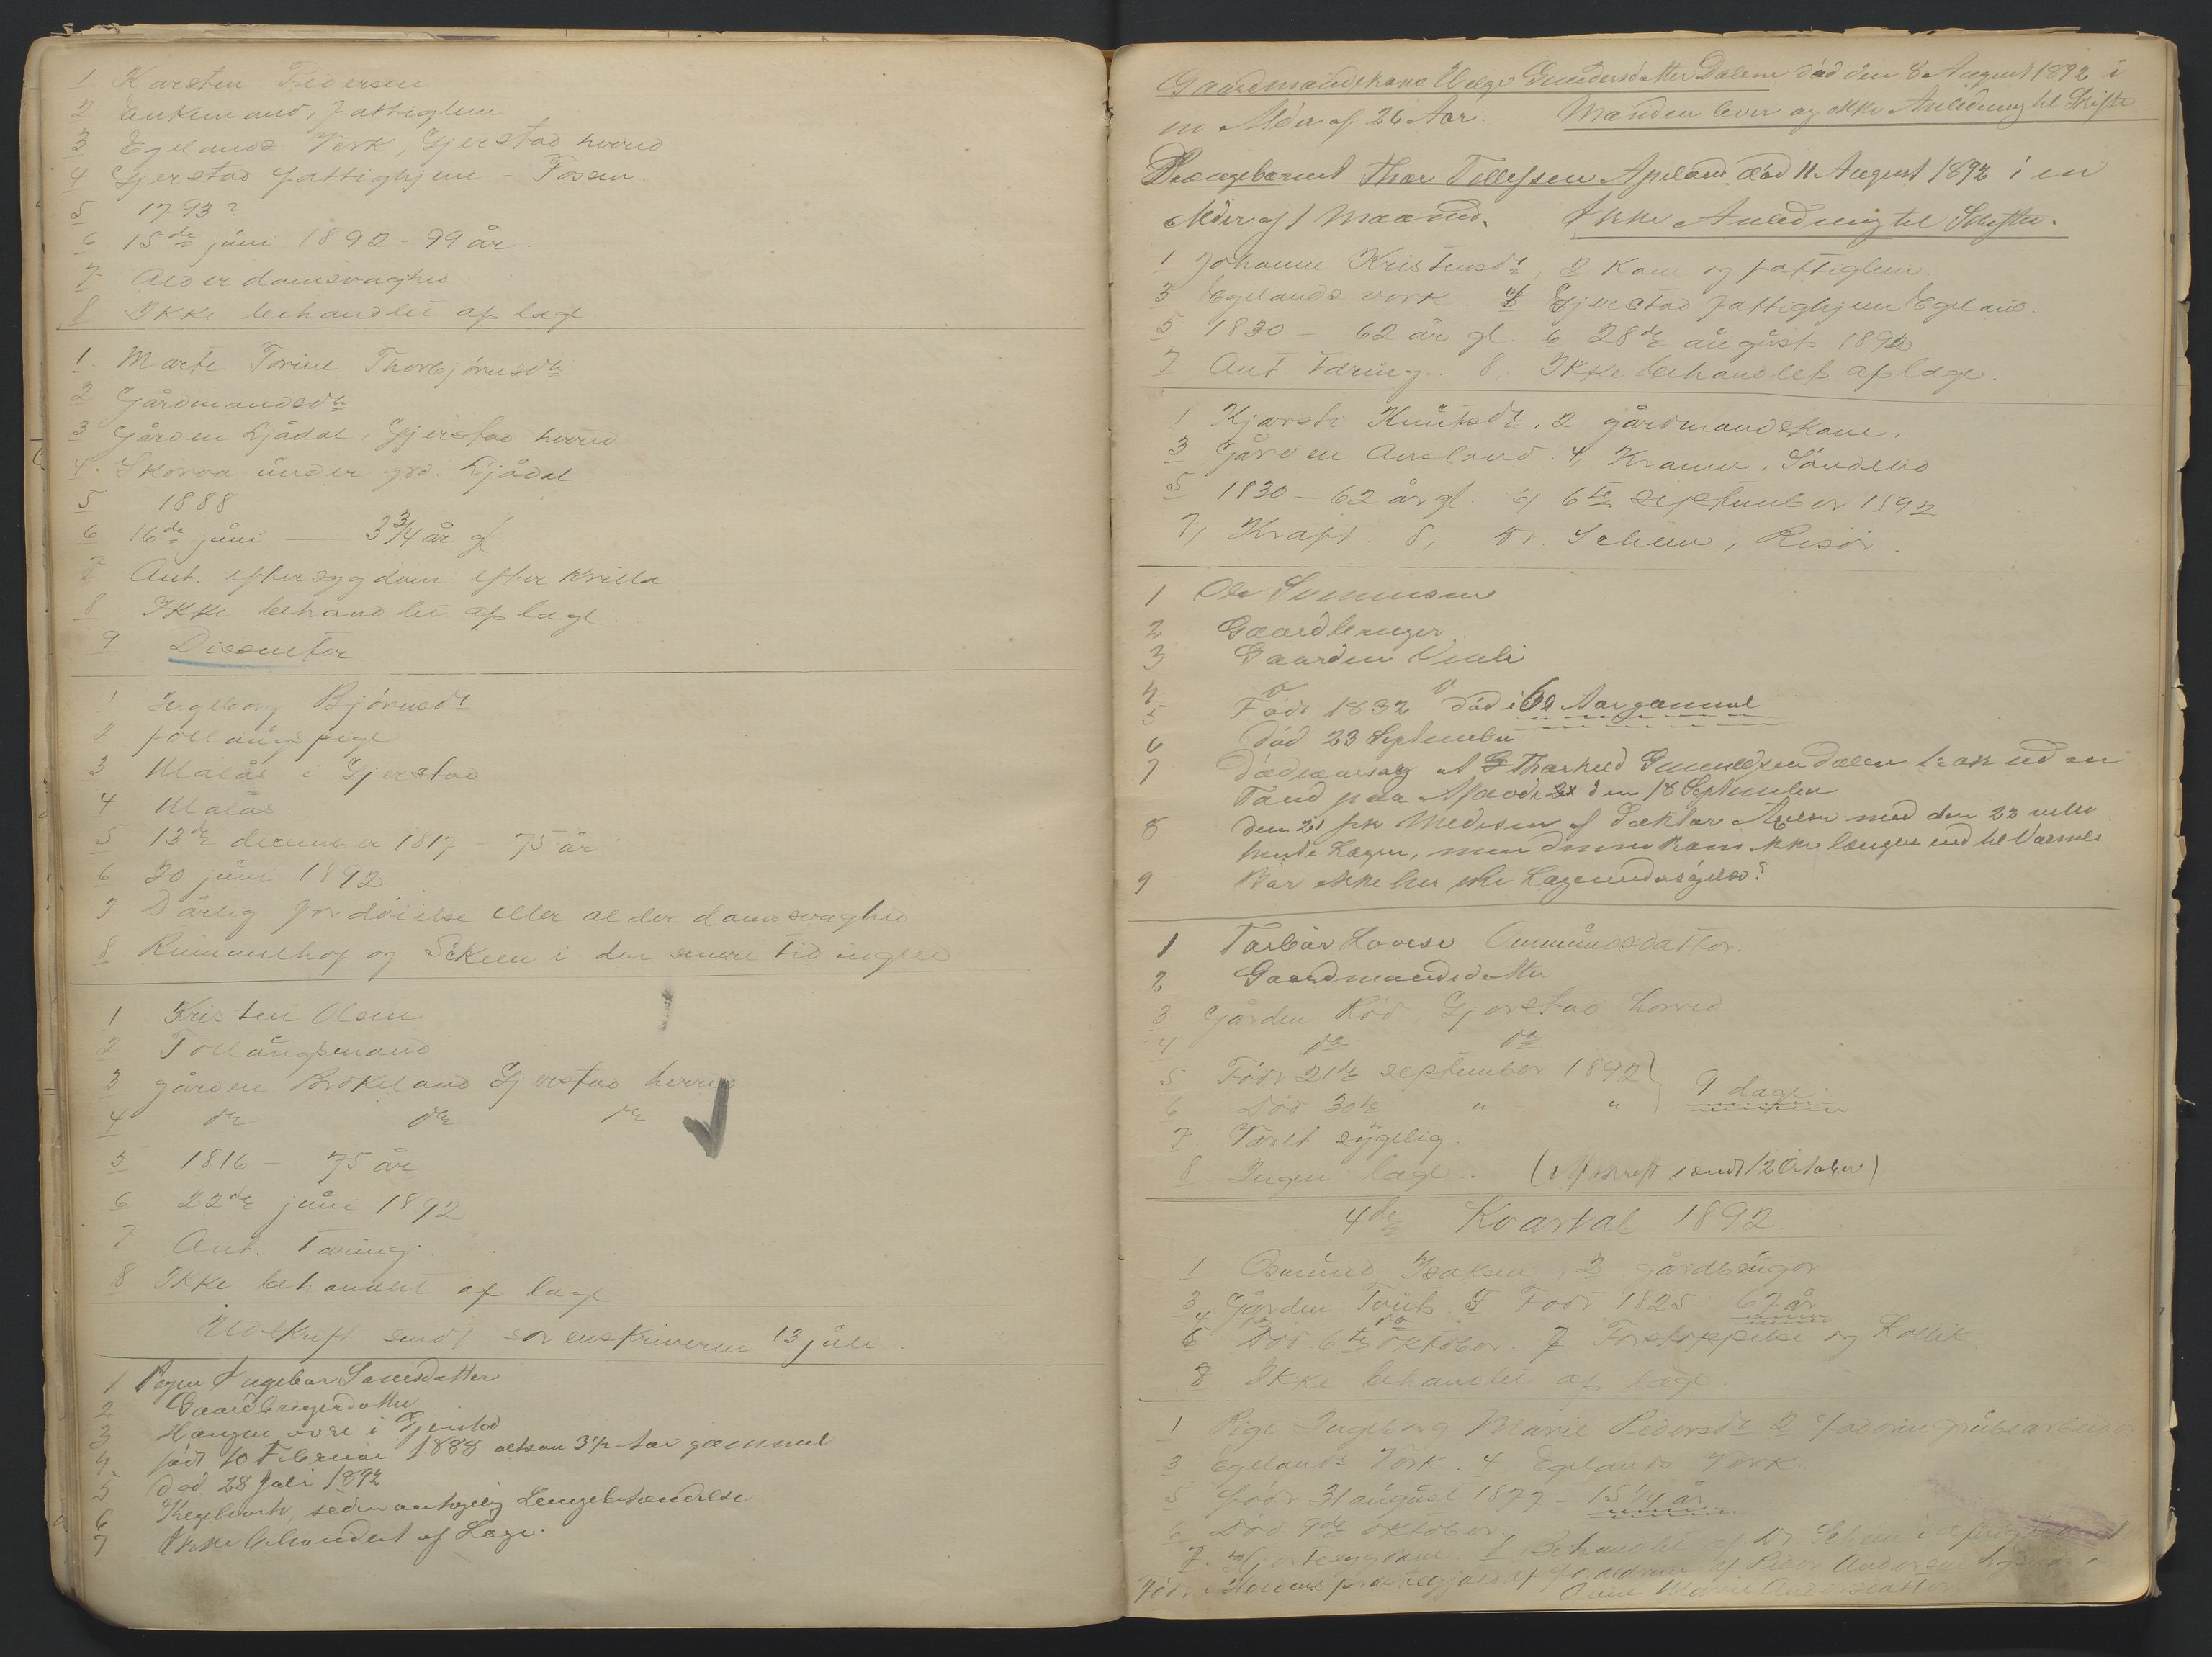 1 Karsten Pedersen
2 Enkemand, fattiglem
3 Egelands Verk, Gjerstad herred
4 Gjerstad fattighjem - Fossen
5 1793?
6 15de juni 1892 - 99 år.
7 Alderdomsvaghed
8 Ikke behandlet af læge
1. Marte Torine Thorbjørnsdtr
2 Gårdmandsdtr
3 Gården Ljådal, Gjerstad herred
4. Skorva under grd. Ljådal
5 1888
6 16de juni — 3 3/4 år gl.
7 Ant. eftersygdom efter krilla
8 Ikke behandlet af læge.
9 Dissenter
1 Ingeborg Bjørnsdt
2 føllaugspige
3 Måiås i Gjerstad
4 Måiås
5 13de december 1817 - 75 år
6 20 juni 1892
7 Dårlig fordøielse eller alderdomsvaghed
8 Rummelhof og Scheen i den senere tid ingen
1 Kristen Olsen
2 Follaugsmand
3 gården Brokeland Gjerstad herred
4 do do do
5 1816 - 75 år
6 22de juni 1892
7 Ant. Tæring.
8 Ikke behandlet af læge
Udskrift sendt sorenskriveren 13 juli.
1 Pigen Ingebor Larsdatter
2 Gaardbrugerdatter
3 i Gjerstad
4 født 10 Februar 1888 altsaa 3 1/2 Aar gammel
5 Død 28 Juli 1892
6 Kighoste, siden Lungebetændelse
7 Ikke behandlet af Læge.
Gaardmandskone Helge Gundersdatter Dalene død den 8 August 1892 i
en Alder af 26 Aar. Manden lever og ikke Anledning til Skifte
Drengebarnet Thor Tellefsen Apeland død 11 August 1892 i en
Alder af 1 Maaned. Ikke Anledning til Skifte.
1 Johanne Kristensdt, 2 Kone og fattiglem.
3 Egelands verk 4 Gjerstad fattighjem Egeland.
5 1830 - 62 år gl. 6 28de august 1892
7 Ant. Tæring. 8. Ikke behandlet af læge.
1 Kjersti Knutsdt, 2 gårdmandskone.
3 Gården Ausland. 4, Kramer, Søndeled
5 1830 - 62 år gl. 6, 6te september 1892
7, Kræft. 8, Dr. Scheen, Risør.
1 Ole Svennsen
2 Gaardbruger
3 Gaarden Vinli
4 do do
5 Født 1832 død i 60 Aar gammel
6 Død 23 September
7 Dødsaarsag at Thorkild Gunuldsen Dalen trak ud en
Tand paa den 18 September
8 Den 21 fik Medisin af Doktor men den 23
hente Lægen, men denne kom ikke længer end til Varmli
9 Bør ikke her ske Lægeundersøgelse?
1 Torbor Lovise Ommundsdatter
2 Gaardmandsdatter
3 Gården Rød, Gjerstad herred
4 do do
5 Født 21de september 1892
6 Død 30te " " } 9 dage
7. Været sygelig.
8 Ingen læge.. (Afskrift sendt 12 October)
4de Kvartal 1892
1 Osmund Isaksen, 2 gårdbruger
3 Gården Tveit 5 Født 1825 - 67 år
4 do do
6 Død 6te oktober. 7 Forstoppelse og Kolik
8 Ikke behandlet af læge.
1 Pige Ingeborg Marie Pedersdt 2 faderen grubearbeider
3 Egelands Verk. 4 Egelands Verk.
5 født 31 august 1877 - 15 1/4 år
6 Død 9de oktober.
7. Hjertesygdom 8 Behandlet af Dr Scheen i
Født i Holdens præstegjæld af forældrene Peder Andersen
Anne Marie Andersdatter